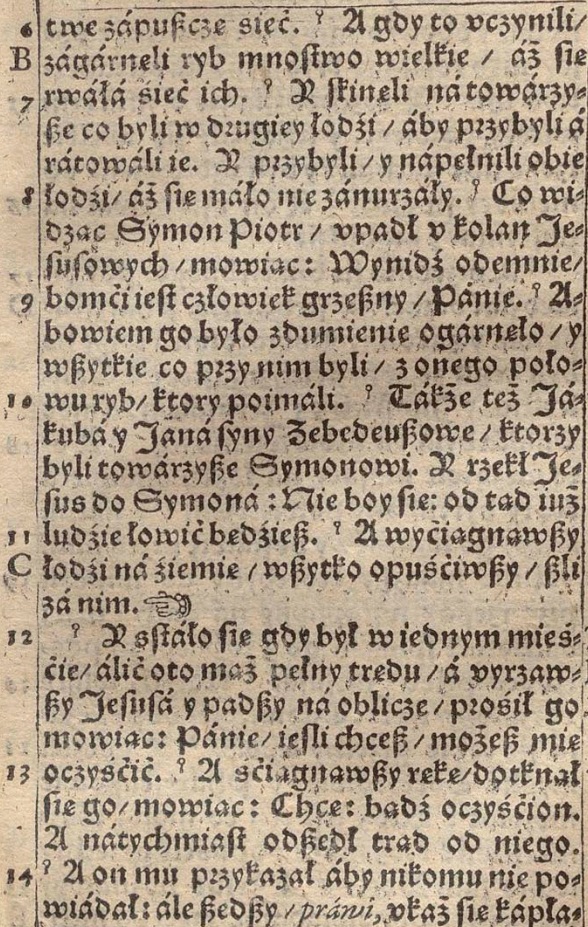 6 twe zápuſzcze ſieć. ⸮ A gdy to vczynili/
B zágárnęli ryb mnoſtwo wielkie / áż ſie
7 rwáłá śieć ich. ⸮ Y ſkinęli ná towárzy⸗
ſze co byli w drugiey łodźi / áby przybyli á
rátowáli ie. Y przybyli / y nápełnili obie
8 łodźi / áż ſie máło nie zánurzáły. ⸮ Co wi⸗
dząc Symon Piotr / vpadł v kolan Je⸗
ſuſowych / mowiąc: Wynidź odemnie /
9 bomći ieſt człowiek grzeſzny / Pánie. ⸮ A⸗
bowiem go było zdumienie ogárnęło / y
wſzytkie co przy nim byli / z onego poło⸗
10 wu ryb / ktory poimáli. ⸮ Tákże też Já⸗
kubá y Janá ſyny Zebedeuſzowe / ktorzy
byli towárzyſze Symonowi. Y rzekł Je⸗
ſus do Symoná: Nie boy ſie: od tąd iuż
11 ludźie łowić będźieſz. ⸮ A wyćiągnąwſzy
C łodźi ná źiemię / wſzytko opuśćiwſzy / ſzli
zá nim. ☜
12 ⸮ Y sſtáło ſie gdy był w iednym mieś⸗
ćie / álić oto mąż pełny trędu / á vyrzaw⸗
ſzy Jeſuſá y padſzy ná oblicze / prośił go
mowiąc: Pánie / ieſli chceſz / możeſz mię
13 oczyśćić. ⸮ A śćiągnąwſzy rękę / dotknął
ſie go / mowiąc: Chcę: bądź oczyśćion.
A nátychmiaſt odſzedł trąd od niego.
14 ⸮ A on mu przykazał áby nikomu nie po⸗
wiádał: ále ſzedſzy / práwi, vkaż ſie kápłá⸗